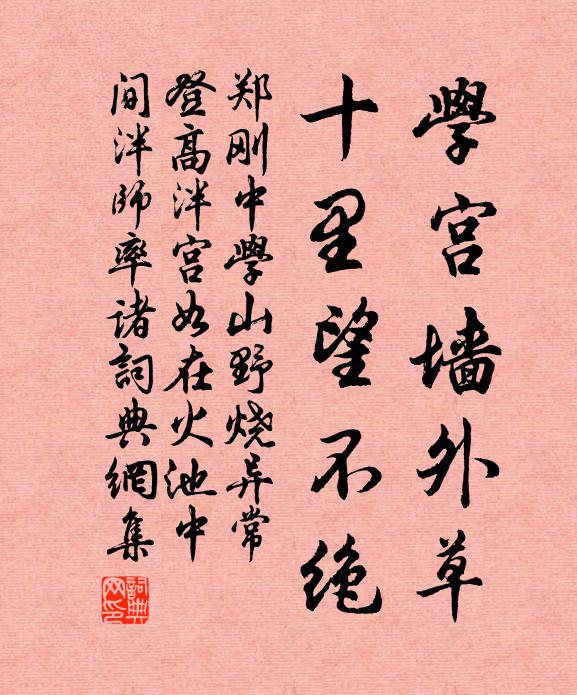 學宫墙外草
十里望不绝
郑刚中學山野烧异常
登高泮宫如在火池中
间泮師率诸詞典網集
詞典网印